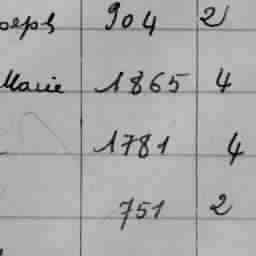 oseph 904 2
Marie 1865 4
1781 4
751 2